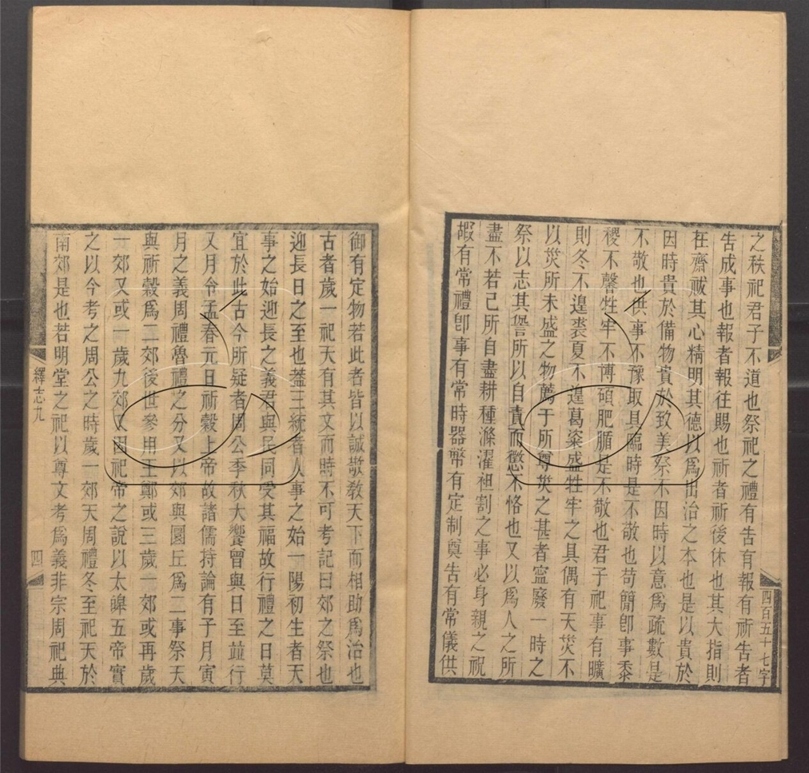 之秩祀君子不道也祭祀之禮有告有報有祈告者
告成事也報者報往賜也祈者祈後休也其大指則
在齋祓其心精明其德以爲出治之本也是以貴於
因時貴於備物貴於致美祭不因時以意爲疏數是
不敬也供事不豫取具臨時是不敬也苟簡卽事黍
稷不馨牲牢不博碩肥腯是不敬也君子祀事有曠
則冬不遑裘夏不遑葛粢盛牲牢之具偶有天災不
以災所未盛之物薦于所尊災之甚者寧廢一時之
祭以志其咎所以自責而懲不恪也又以爲人之所
盡不若己所自盡耕種滌濯袒割之事必身親之祝
嘏有常禮卽事有常時器幣有定制奠告有常儀供
四百五十七字
御有定物若此者皆以誠敬敎天下而相助爲治也
古者歲一祀天有其文而時不可考記曰郊之祭也
迎長日之至也蓋三統者人事之始一陽初生者天
事之始迎長之義君與民同受其福故行禮之日莫
宜於此古今所疑者周公季秋大饗曾與日至並行
又月令孟春元日祈穀上帝故諸儒持論有子月寅
月之義周禮魯禮之分又以郊與圜丘爲二事祭天
與祈穀爲二郊後世參用王鄭或三歲一郊或再歲
一郊又或一歲九郊又因祀帝之說以太皞五帝實
之以今考之周公之時歲一郊天周禮冬至祀天於
南郊是也若明堂之祀以尊文考爲義非宗周祀典
繹志九
四